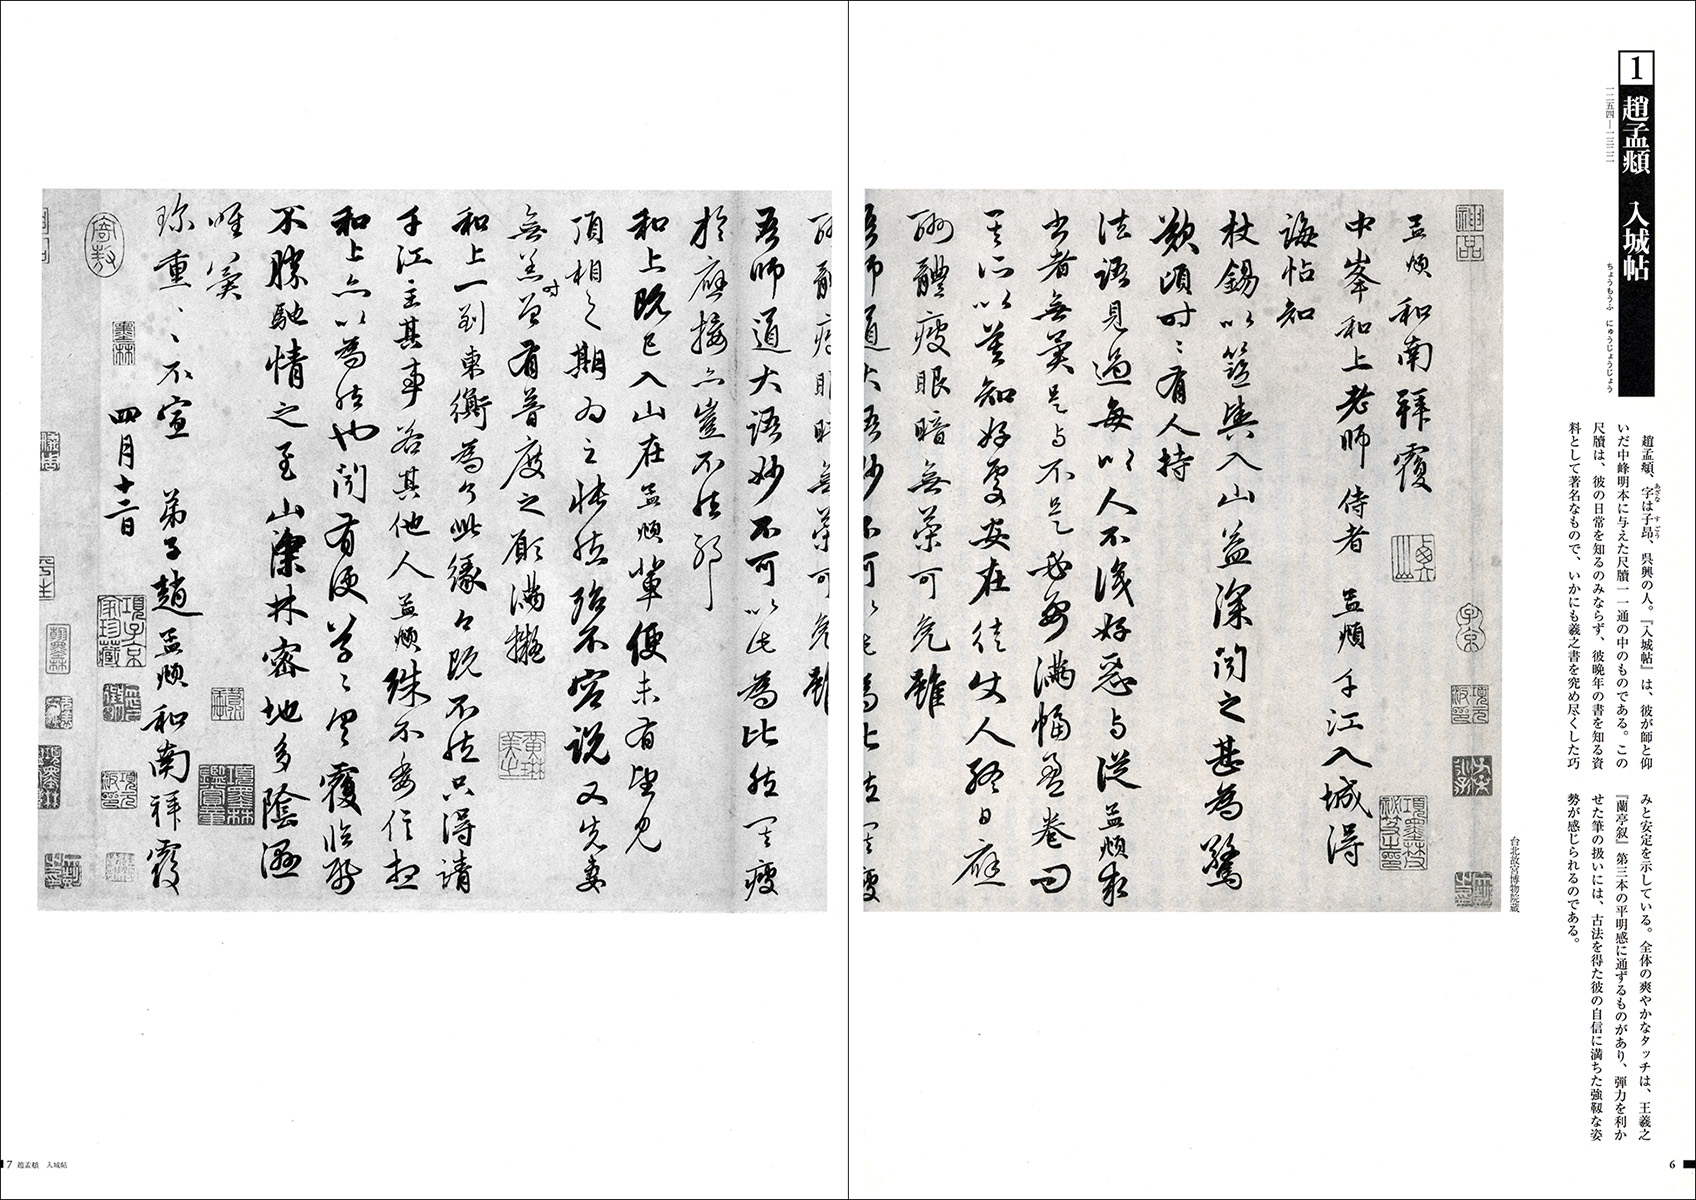 1 趙孟頫 入城帖
一二五四―一三二二
ちょうもうふ にゅうじょうじょう
趙孟頫、字は子昂、呉興の人。『入城帖』は、彼が師と仰
いだ中峰明本に与えた尺牘一一通の中のものである。この
尺牘は、彼の日常を知るのみならず、彼晩年の書を知る資
料として著名なもので、いかにも羲之書を究め尽くした巧
みと安定を示している。全体の爽やかなタッチは、王羲之
『蘭亭叙』第三本の平明感に通ずるものがあり、弾力を利か
せた筆の扱いには、古法を得た彼の自信に満ちた強靱な姿
勢が感じられるのである。
台北故宮博物院蔵
孟頫和南拜覆
中峯和上老師侍者 孟頫千江入城得
誨帖知
杖錫以簦輿入山益深聞之甚為驚
歎頃時〻有人持
法語見過每以人不識好惡与從孟頫求
書者無異是与不是必要滿幅盈卷問
其所以莫知好處安在徒使人終日應
酬體疲眼暗無策可免雖
吾師道大語妙不可以此為比然其疲
於應接亦豈不然耶
和上既已入山在孟頫輩便未有望見
頂相之期為之悵然殆不容説又先妻
無恙時曾有普度之願滿擬
和上一到東衡為了此緣今既不然只得請
千江主其事若其他人孟頫殊不委信想
和上亦以為然也聞有便草〻具覆臨紙
不勝馳情之至山深林密地多陰濕
唯冀
珍重〻〻不宣 弟子趙孟頫和南拜覆
四月十二日
6
7 趙孟頫 入城帖